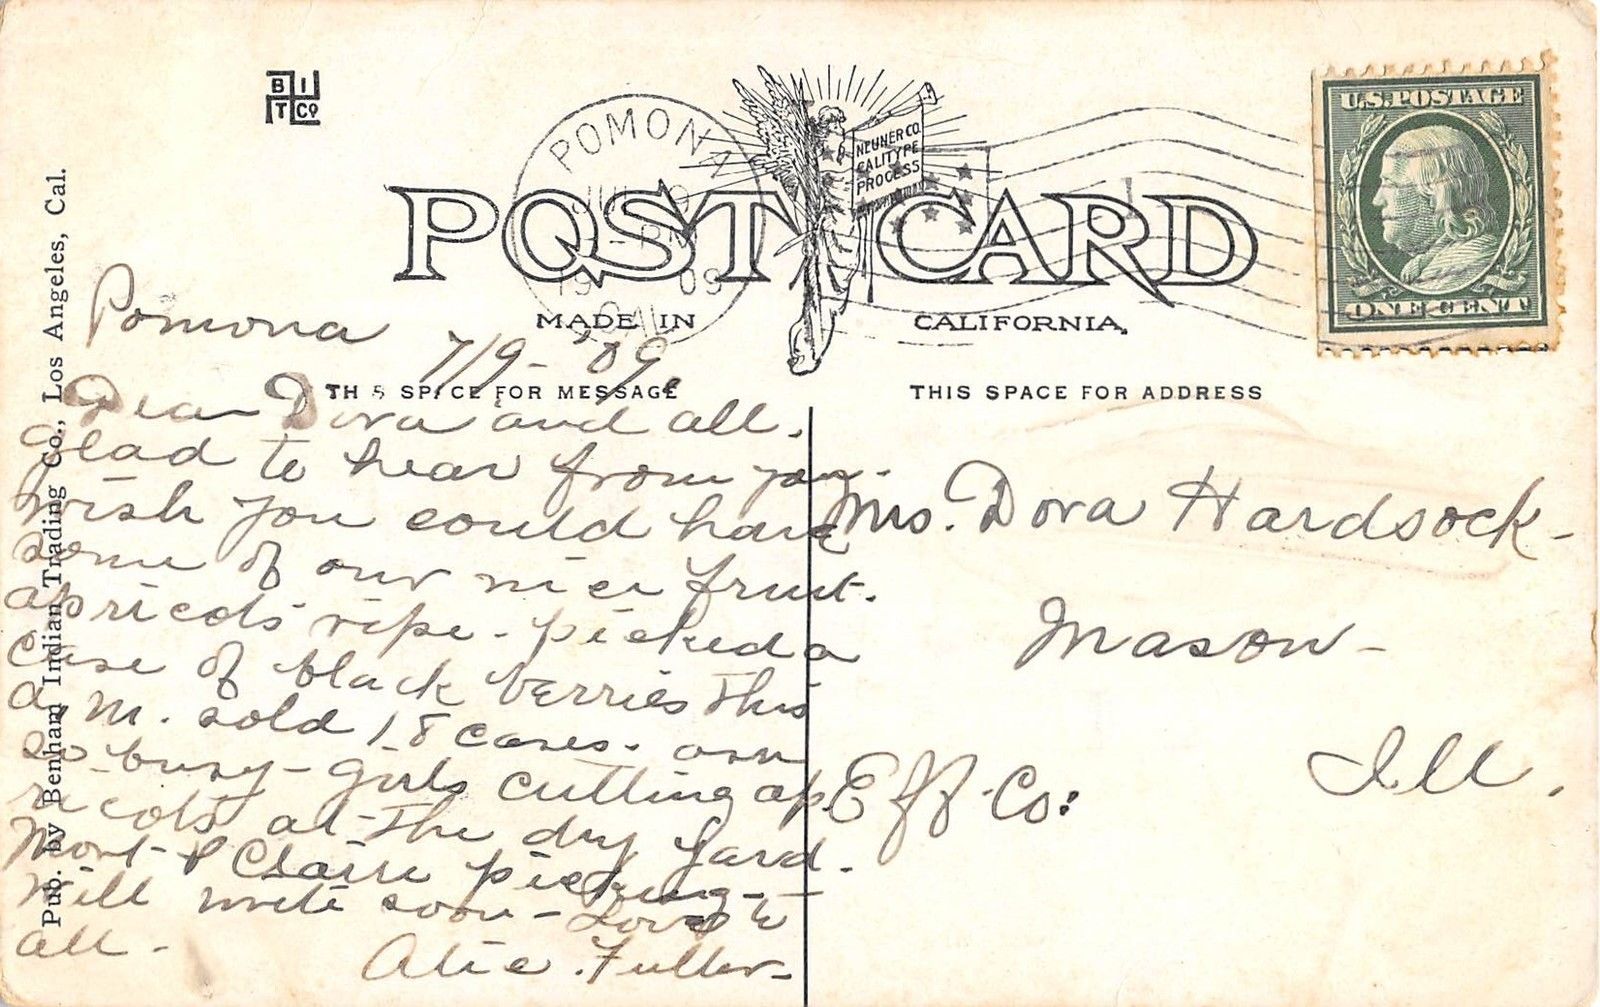 B I
T Co
NEUNER CO.
CALITYPE
PROCESS
POMONA
JUL 9
PM
1909
CAL
U.S. POSTAGE
ONE CENT
POST CARD
MADE IN CALIFORNIA
THIS SPACE FOR MESSAGE
THIS SPACE FOR ADDRESS
Pub. by Benham Indian Trading Co., Los Angeles, Cal.
Pomona
7/9-'09.
Dear Dora and all.
Glad to hear from you
wish you could have
some of our nice fruit.
apricots ripe - picked a
case of black berries this
a. m. sold 18 cases. am
so busy - girls cutting ap
ricots at the dry yard.
Mort & Claire picking -
will write soon - Love to
all -
Alie Fuller -
Mrs. Dora Hardsock -
Mason -
Eff. Co:
Ill.